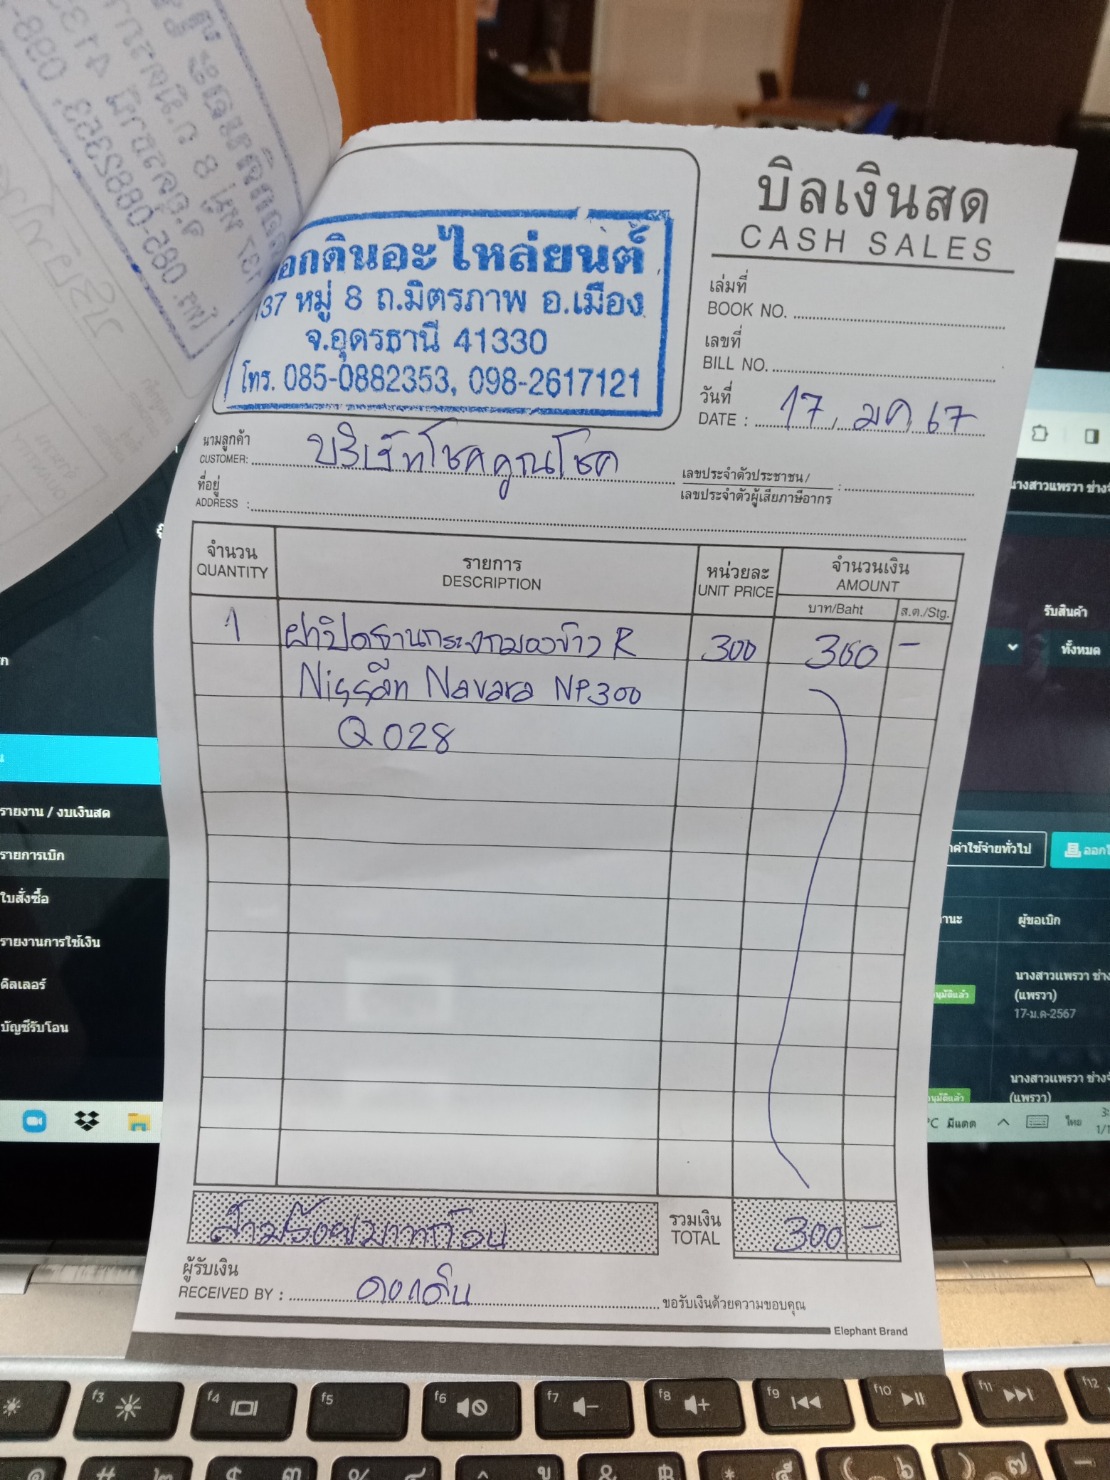 บิลเงินสด
CASH SALES
อกดินอะไหล่ยนต์
37 หมู่ 8 ถ.มิตรภาพ อ.เมือง
จ.อุดรธานี 41330
โทร. 085-0882353, 098-2617121
เล่มที่
BOOK NO.
เลขที่
BILL NO.
วันที่
DATE : 17, มค, 67
นามลูกค้า
CUSTOMER: บริษัทโชคคูณโชค
ที่อยู่
ADDRESS :
เลขประจำตัวประชาชน /
เลขประจำตัวผู้เสียภาษีอากร :
จำนวน รายการ หน่วยละ จำนวนเงิน
QUANTITY DESCRIPTION UNIT PRICE AMOUNT
บาท/Baht ส.ต./Stg.
1 ฝาปิดฐานกระจกมองข้าง R 300 300 -
Nissan Navara NP300
Q028
สามร้อยบาทถ้วน
รวมเงิน
TOTAL 300 -
ผู้รับเงิน
RECEIVED BY : ดอกดิน
ขอรับเงินด้วยความขอบคุณ
Elephant Brand
รายงาน / งบเงินสด
รายการเบิก
ใบสั่งซื้อ
รายงานการใช้เงิน
ดีลเลอร์
บัญชีรับโอน
นางสาวแพรวา ช่าง
รับสินค้า
ทั้งหมด
ค่าใช้จ่ายทั่วไป
ผู้ขอเบิก
นางสาวแพรวา ช่าง
(แพรวา)
17-ม.ค-2567
นางสาวแพรวา ช่าง
(แพรวา)
°C มีแดด
ไทย
f3 f4 f5 f6 f7 f8 f9 f10 f11 f12